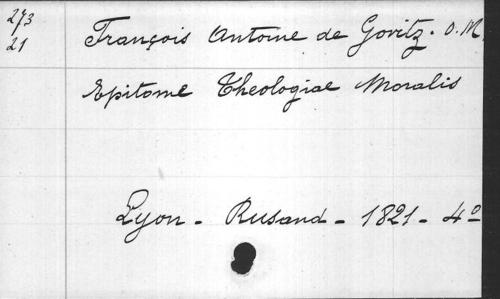 273 François Antoine de Goritz. O.M.
21
Epitome Theologiae Moralis
Lyon - Rusand - 1821 - 4º